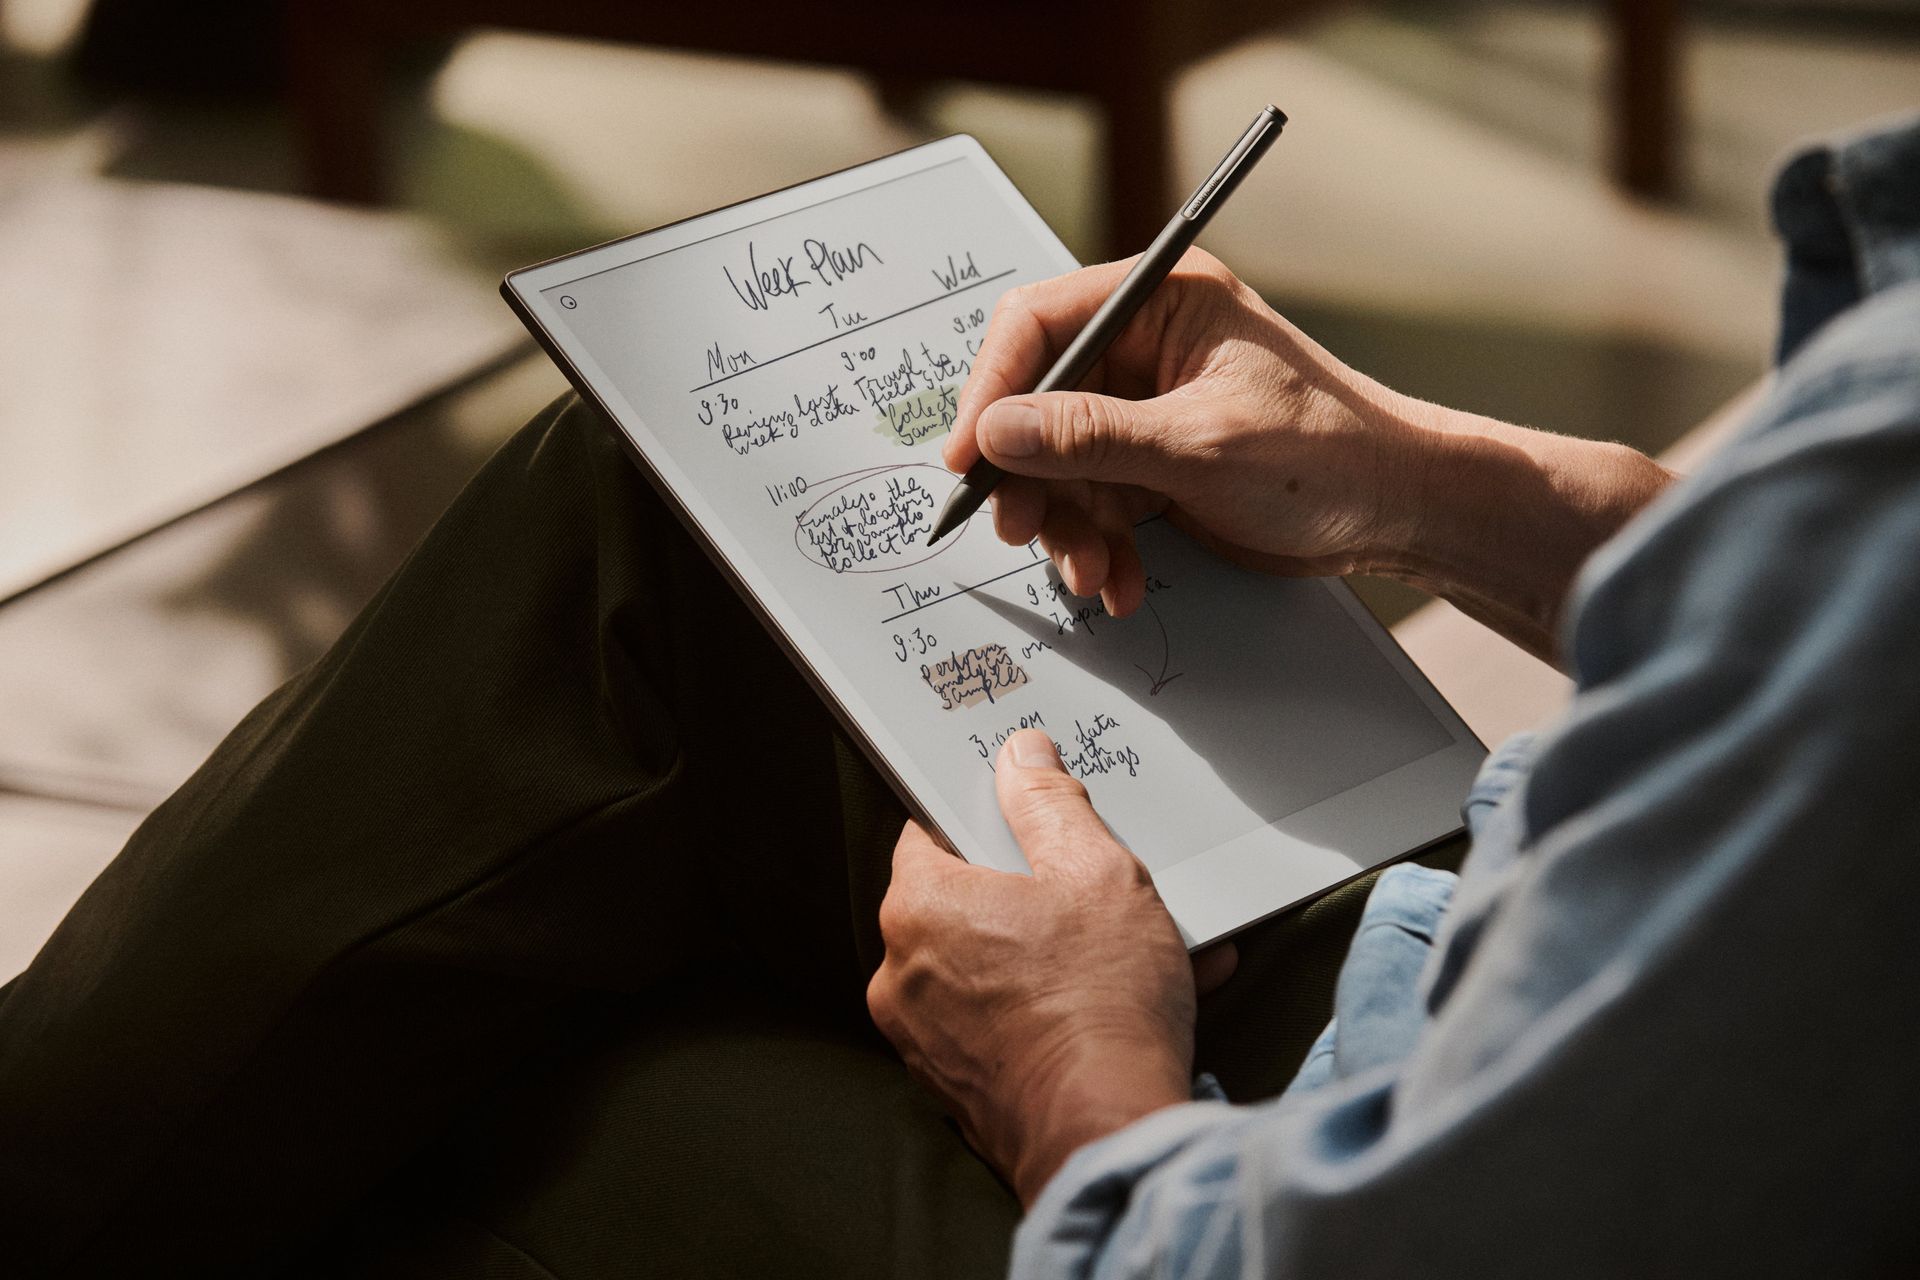 Week Plan
Mon Tue Wed
9:30
Review last
week's data
11:00
Finalize the
list of locations
for sample
collection
9:00
Travel to
field sites
Collect
samp
9:00
Thu
9:30
Perform
analysis on
samples
3:00 PM
data
with
9:30
Input